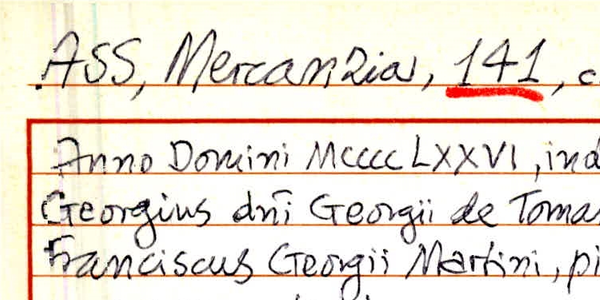 ASS, Mercanzia, 141, c
Anno Domini MCCCCLXXVI, ind
Georgius dnī Georgii de Toma
Franciscus Georgii Martini, pi